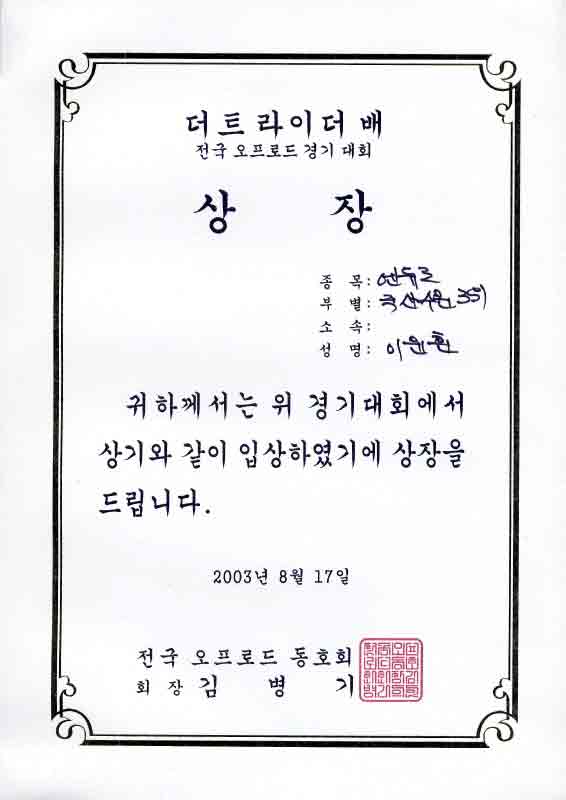 더트라이더배
전국 오프로드 경기 대회
상 장
종 목: 엔듀로
부 별: 3위
소 속:
성 명: 이윤환
귀하께서는 위 경기대회에서
상기와 같이 입상하였기에 상장을
드립니다.
2003년 8월 17일
전국 오프로드 동호회
회 장 김 병 기